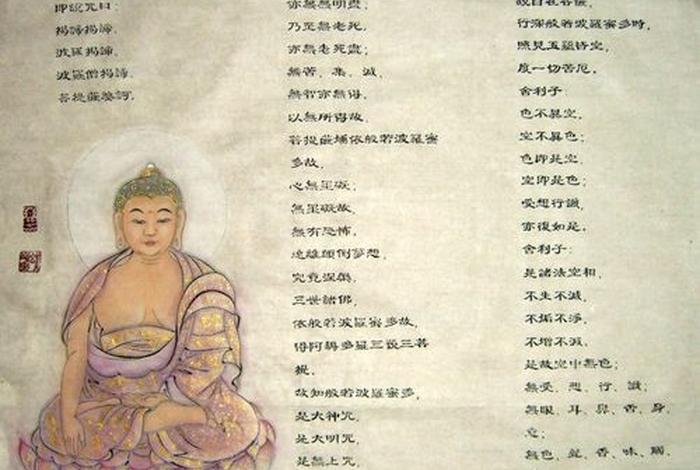 自在菩薩,
行深般若波羅蜜多時,
照見五蘊皆空,
度一切苦厄.
舍利子:
色不異空,
空不異色;
色即是空,
空即是色;
受想行識,
亦復如是.
舍利子:
是諸法空相,
不生不滅,
不垢不淨,
不增不減,
是故空中無色;
無受、想、行、識;
無眼、耳、鼻、舌、身、
意;
無色、聲、香、味、觸、
亦無無明盡;
乃至無老死,
亦無老死盡;
無苦、集、滅、
無智亦無得,
以無所得故
菩提薩埵依般若波羅蜜
多故,
心無罣礙;
無罣礙故,
無有恐怖,
遠離顛倒夢想,
究竟涅槃.
三世諸佛,
依般若波羅蜜多故,
得阿耨多羅三藐三菩
提.
故知般若波羅蜜多,
是大神咒,
是大明咒,
是無上咒,
即說咒曰:
揭諦揭諦,
波羅揭諦,
波羅僧揭諦,
菩提薩婆訶.